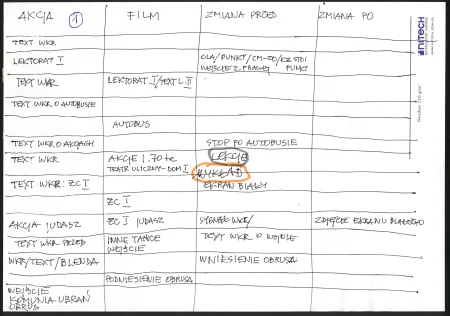 AKCJA 1 FILM ZMIANA PRZED ZMIANA PO
TEXT WKR
LEKTORAT I OLA/PUNKT/CM-20/KRZ STOI
WEJŚCIE Z PRACY PUNKT
TEXT WKR LEKTORAT I/TEXT L.II
TEXT WKR O AUTOBUSIE
AUTOBUS
TEXT WKR O AKCJACH STOP PO AUTOBUSIE
TEXT WKR AKCJE L.70te LEKCJE
TEATR ULICZNY-DOM I WYKŁAD
TEXT WKR: ZC I EKRAN BIAŁY
ZC I
AKCJA JUDASZ ZC I JUDASZ SYGNAŁ WKR/ ZDJĘCIE EKRANU BIAŁEGO
TEXT WKR PRZED INNE TAŃCE TEXT WKR O WOJNIE
WEJŚCIE
WKR/TEXT/BLENDA WNIESIENIE OBRUSA
PODNIESIENIE OBRUSA
WEJŚCIE
KOMUNIA UBRAŃ
OBRUS
NITECH